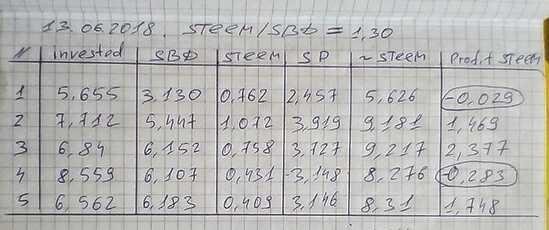 13.06.2018. STEEM/SBD = 1,30
N invested SBD STEEM SP ~STEEM Profit STEEM
1 5,655 3,130 0,762 2,457 5,626 -0,029
2 7,712 5,447 1,072 3,919 9,181 1,469
3 6,84 6,152 0,758 3,727 9,217 2,377
4 8,559 6,107 0,431 3,148 8,276 -0,283
5 6,562 6,183 0,409 3,146 8,31 1,748